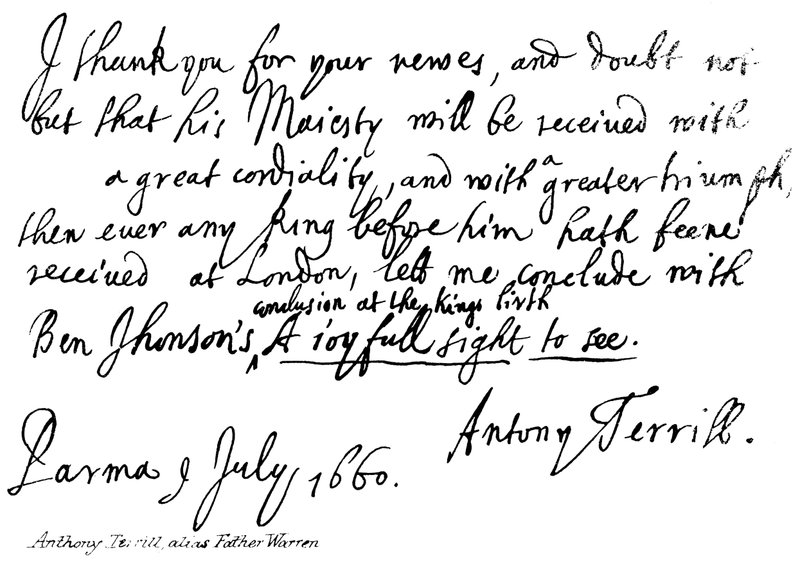 I thank you for your newes, and doubt not
but that his Maiesty will be receiued with
a great cordiality, and with a greater triumph,
then euer any King before him hath beene
receiued at London, lett me conclude with
conclusion at the kings birth
Ben Jhonson's ^ A ioyfull sight to see.
Antony Terrill.
Parma 9 July 1660.
Anthony Terrill, alias Father Warren